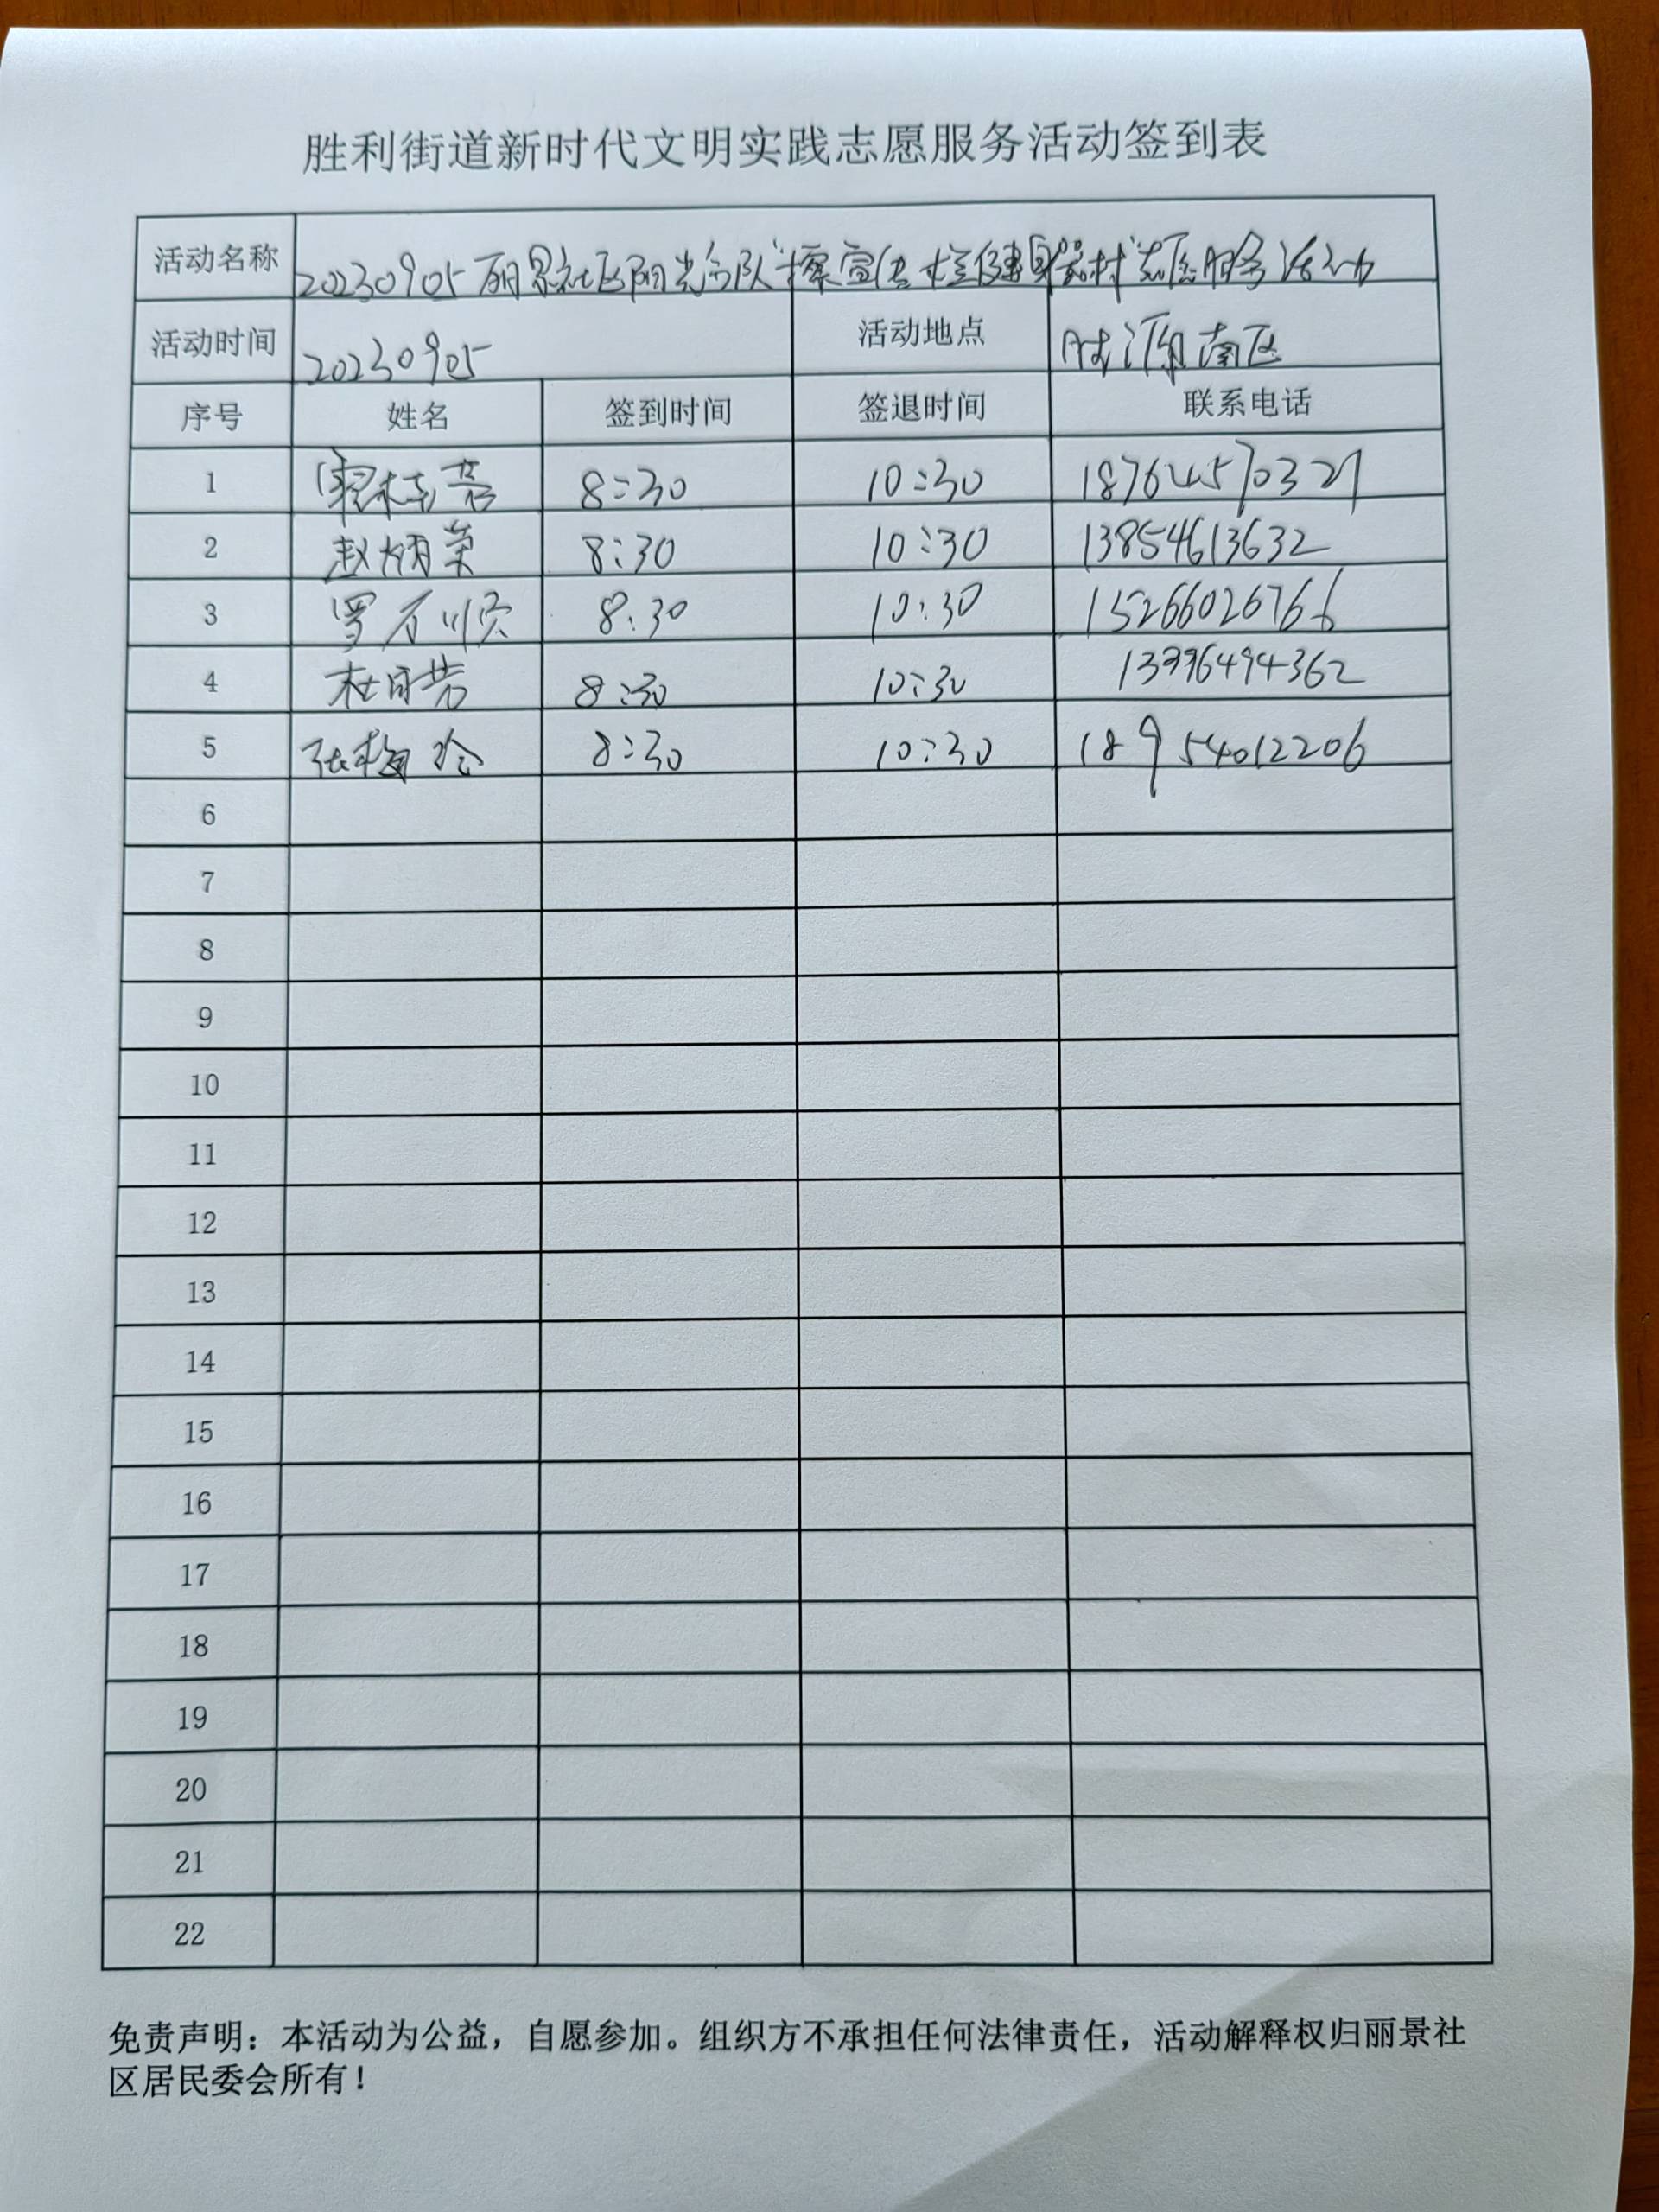 胜利街道新时代文明实践志愿服务活动签到表
活动名称 20230905丽景社区阳光分队“擦宣传栏健身器材”志愿服务活动
活动时间 20230905 活动地点 胜源南区
序号 姓名 签到时间 签退时间 联系电话
1 8:30 10:30 18764570321
2 赵炳荣 8:30 10:30 13854613632
3 罗不顺 8:30 10:30 15266026766
4 杜月芳 8:30 10:30 13396494362
5 张梅玲 8:30 10:30 18954012206
6
7
8
9
10
11
12
13
14
15
16
17
18
19
20
21
22
免责声明：本活动为公益，自愿参加。组织方不承担任何法律责任，活动解释权归丽景社
区居民委会所有！